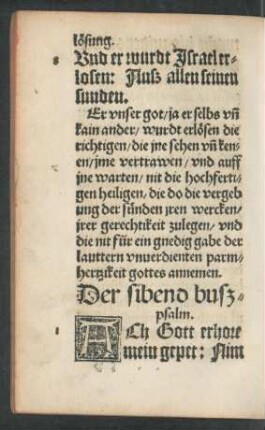 lösung.
8 Vnd er wurdt Israel er-
losen: Ausz allen seinen
sunden.
Er vnser got/ ja er selbs vñ
kain ander/ wurdt erlösen die
richtigen/ die jne sehen vñ ken-
en/ jme vertrawen/ vnd auff
jne warten/ nit die hochferti-
gen heiligen/ die do die vergeb
ung der sünden jren wercken/
jrer gerechtikeit zulegen/ vnd
die nit für ein gnedig gabe der
lauttern vnuerdienten parm-
hertzikeit gottes annemen.
Der sibend busz-
psalm.
1 ACh Gott erhore
mein gepet: Nim